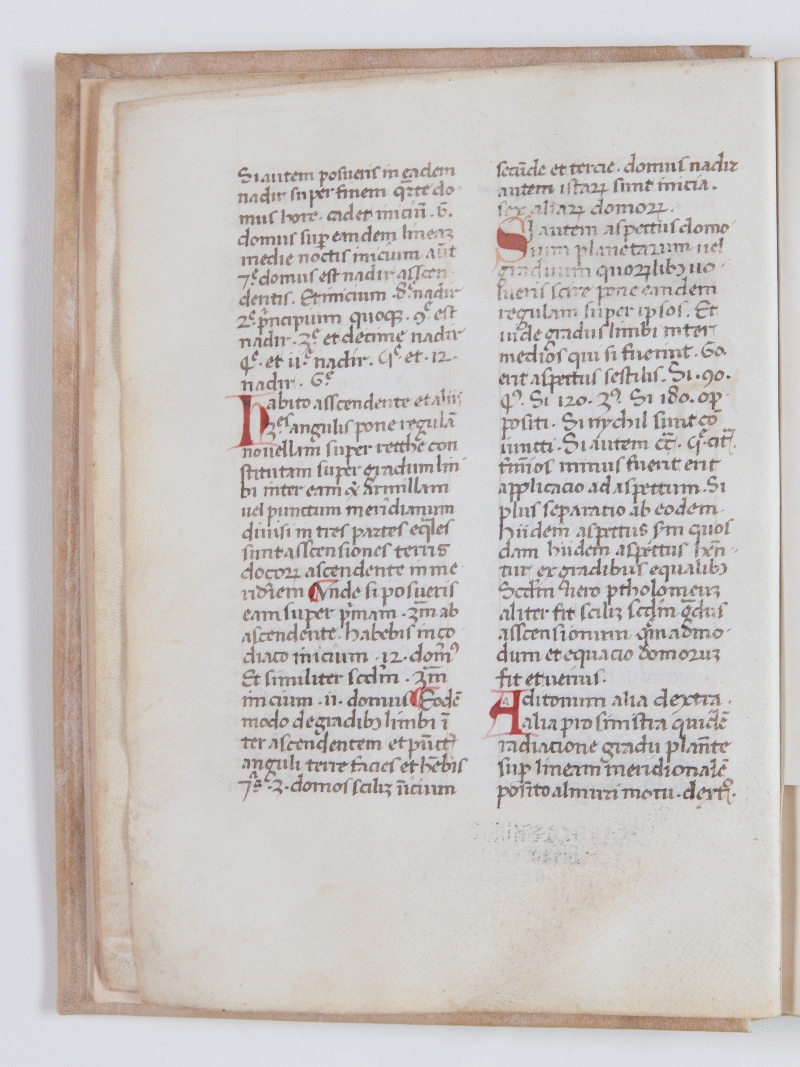 Si autem posueris in eadem
nadir super finem q̄rte do
mus hore. cadet iniciū. 6.
domus sup eandem lineaʒ
medie noctis inicium aūt
7ᵉ domus est nadir asscen
dentis. Et inicium .8ᵉ nadir
2ᵉ. p̄ncipium quoqꝫ. 9ᵉ est
nadir. 3ᵉ et decime nadir
4ᵉ. et 11ᵉ nadir. 5ᵉ et. 12.
nadir. 6ᵉ
habito asscendente et aliis
angulis pone regulā
novellam super retthe con
stitutam super gradum lim
bi inter eam & armillam
vel punctum meridianum
divisi in tres partes eq̄les
sunt asscensiones terris
docoꝝ ascendente in me
ridiem Unde si posueris
eam super p̄mam. 3m ab
ascendente. habebis in ço
diaco inicium .12. domꝰ
Et similiter scdm̄. 3m̄
inicium .11. domus Eodē
modo de gradibꝫ limbi ī
ter ascendentem et pūctꝫ
anguli terre facies et hēbis
7ᵉ 3. domos sciliꝫ īicium
secūde et tercie. domus nadir
autem istaꝝ sunt inicia.
sex aliaꝝ domoꝝ.
SI autem aspettus domo
rum planetarum vel
graduum quoꝝlibꝫ vo
lueris scire pone eandem
regulam super ipsos. Et
vide gradus limbi inter
medios qui si fuerint. 60.
erit aspettus sestilis. Si .90.
4ꝰ. Si 120. 3ꝰ. Si 180. op
positi. Si nychil sunt cō
iuncti. Si autem
t̄mīos minus fuerit erit
applicacio ad aspettum. Si
plus separatio ab eodem.
hiidem aspettus s̄m quos
dam hiidem aspettus hēn
tur ex gradibus equalibꝫ
Scdm̄ vero ptholomeuʒ
aliter fit sciliꝫ scdm̄ g̊dus
asscensionum q̄madmo
dum et equacio domoruʒ
fit et verius.
Aditorum alia dextra.
alia pro sinistra quidē
radiatione gradu planēte
sup lineam meridionalē
posito almuri motu. dextꝫ.